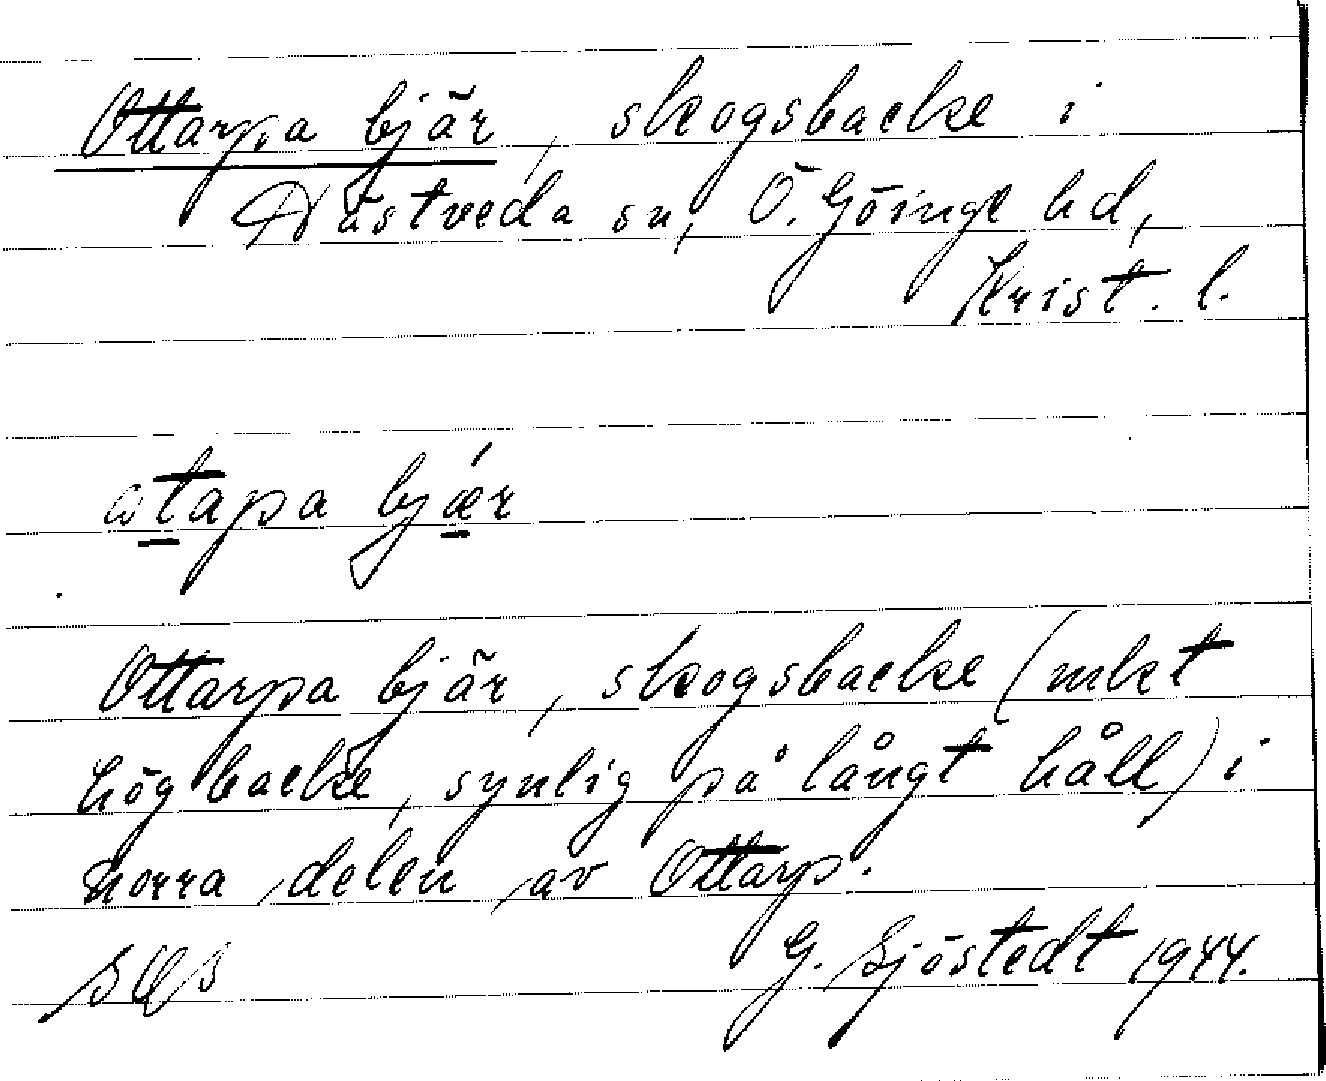 Ottarpa bjär, skogsbacke i
Nästveda sn, Ö. Göinge hd,
Krist. l.
bjǽr
Ottarpa bjär, skogsbacke (mkt
hög backe, synlig på långt håll) i
norra delen av Ottarp.
G. Sjöstedt 1944.